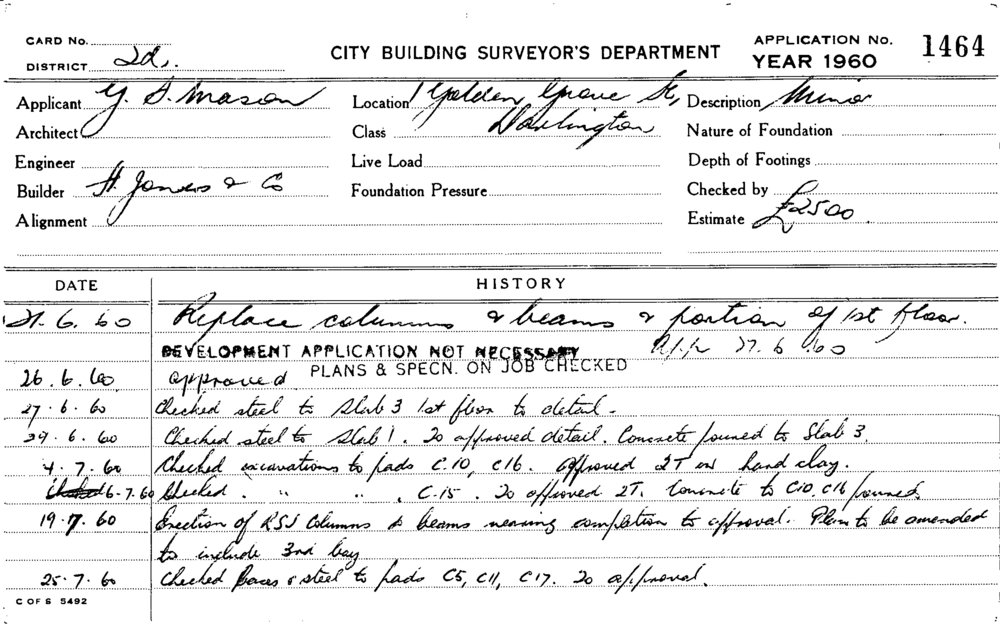 CARD No.
DISTRICT 2d.
CITY BUILDING SURVEYOR'S DEPARTMENT
APPLICATION No. 1464
YEAR 1960
Applicant G. S. Mason
Location 1 Golden Grove St,
Description Minor
Architect
Class Darlington
Nature of Foundation
Engineer
Live Load
Depth of Footings
Builder H. Jones & Co
Foundation Pressure
Checked by
Alignment
Estimate £2500.
DATE HISTORY
21.6.60 Replace columns & beams & portion of 1st floor.
DEVELOPMENT APPLICATION NOT NECESSARY 27.6.60
PLANS & SPECN. ON JOB CHECKED
26.6.60 approved
27.6.60 Checked steel to Slab 3 1st floor to detail.
29.6.60 Checked steel to Slab 1. To approved detail. Concrete poured to Slab 3.
4.7.60 Checked excavations to pads C.10, C16. Approved 2T on hard clay.
6.7.60 Checked . " " . C.15. To approved 2T. Concrete to C10, C16 poured.
19.7.60 Erection of RSJ Columns & beams nearing completion to approval. Plan to be amended
to include 3rd bay
25.7.60 Checked Bases & steel to pads C5, C11, C17. To approval.
C OF S 5492